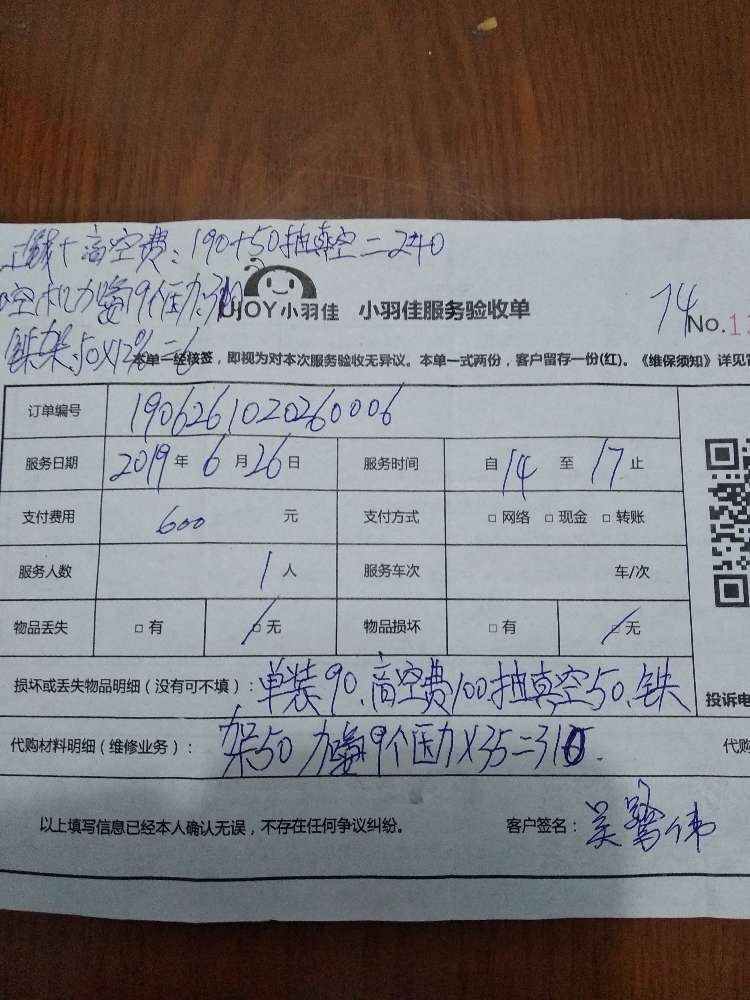 十高空费:190+50抽真空=240
空机加氟9个压力:310
铁架:50X12%=6
UJOY小羽佳 小羽佳服务验收单
74
No.11
本单一经核签,即视为对本次服务验收无异议。本单一式两份,客户留存一份(红)。《维保须知》详见背
订单编号 1906261020260006
服务日期 2019年6月26日 服务时间 自14至17止
支付费用 600元 支付方式 □网络 □现金 □转账
服务人数 1人 服务车次 车/次
物品丢失 □有 □无 物品损坏 □有 □无
损坏或丢失物品明细(没有可不填): 单装90、高空费100、抽真空50、铁
投诉电
代购材料明细(维修业务): 架50 加氟9个压力X35=315.
代购
以上填写信息已经本人确认无误,不存在任何争议纠纷。 客户签名:吴